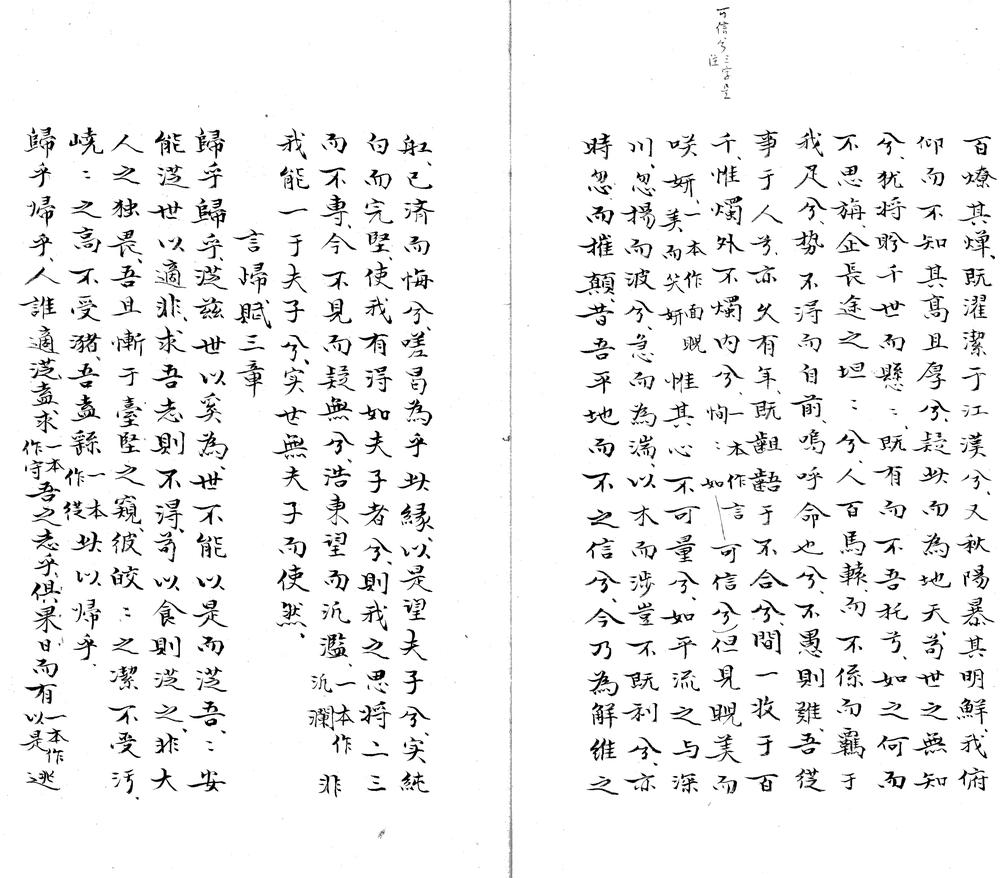 可信兮三字是
注
百燎其燀、既濯潔于江漢兮、又秋陽暴其明鮮、我俯
仰而不知其髙且厚兮、疑此而為地天、苟世之無知
兮、犹将盻千世而懸〻、既有而不吾托兮、如之何而
不思旃、企長途之坦〻兮、人百馬轅、而不係而羈于
我足兮、势不得而自前、嗚呼命也兮、不愚則雖吾従
事于人兮、亦久有年、既齟齬于不合兮、間一收于百
千、惟燭外不燭内兮、一本作言恂〻如可信兮)但見睍美而
咲妍、一本作面睍美而笑妍惟其心不可量兮、如平流之与深
川、忽揚而波兮、急而為湍、以木而涉豈不既利兮、亦
時忽而摧顛、昔吾平地而不之信兮、今乃為解维之
舡、已済而悔兮、嗟曷為乎此緣、以是望夫子兮、实純
白而完堅、使我有得如夫子者兮、則我之思将二三
而不專、今不見而疑無兮、浩東望而汎濫、一本作汎瀾非
我能一于夫子兮、实世無夫子而使然、
言帰賦三章
歸乎歸乎、茫兹世以奚為、世不能以是而茫吾、〻安
能茫世以適非、求吾志則不得、苟以食則茫之、非大
人之独畏、吾且慚于臺堅之窺、彼皎〻之潔不受汚、
嶢〻之高不受豬、吾盍繇一本作従此以帰乎、
歸乎帰乎、人誰適茫盍求一本作守吾之志乎、俱果日而有一本作以是逃